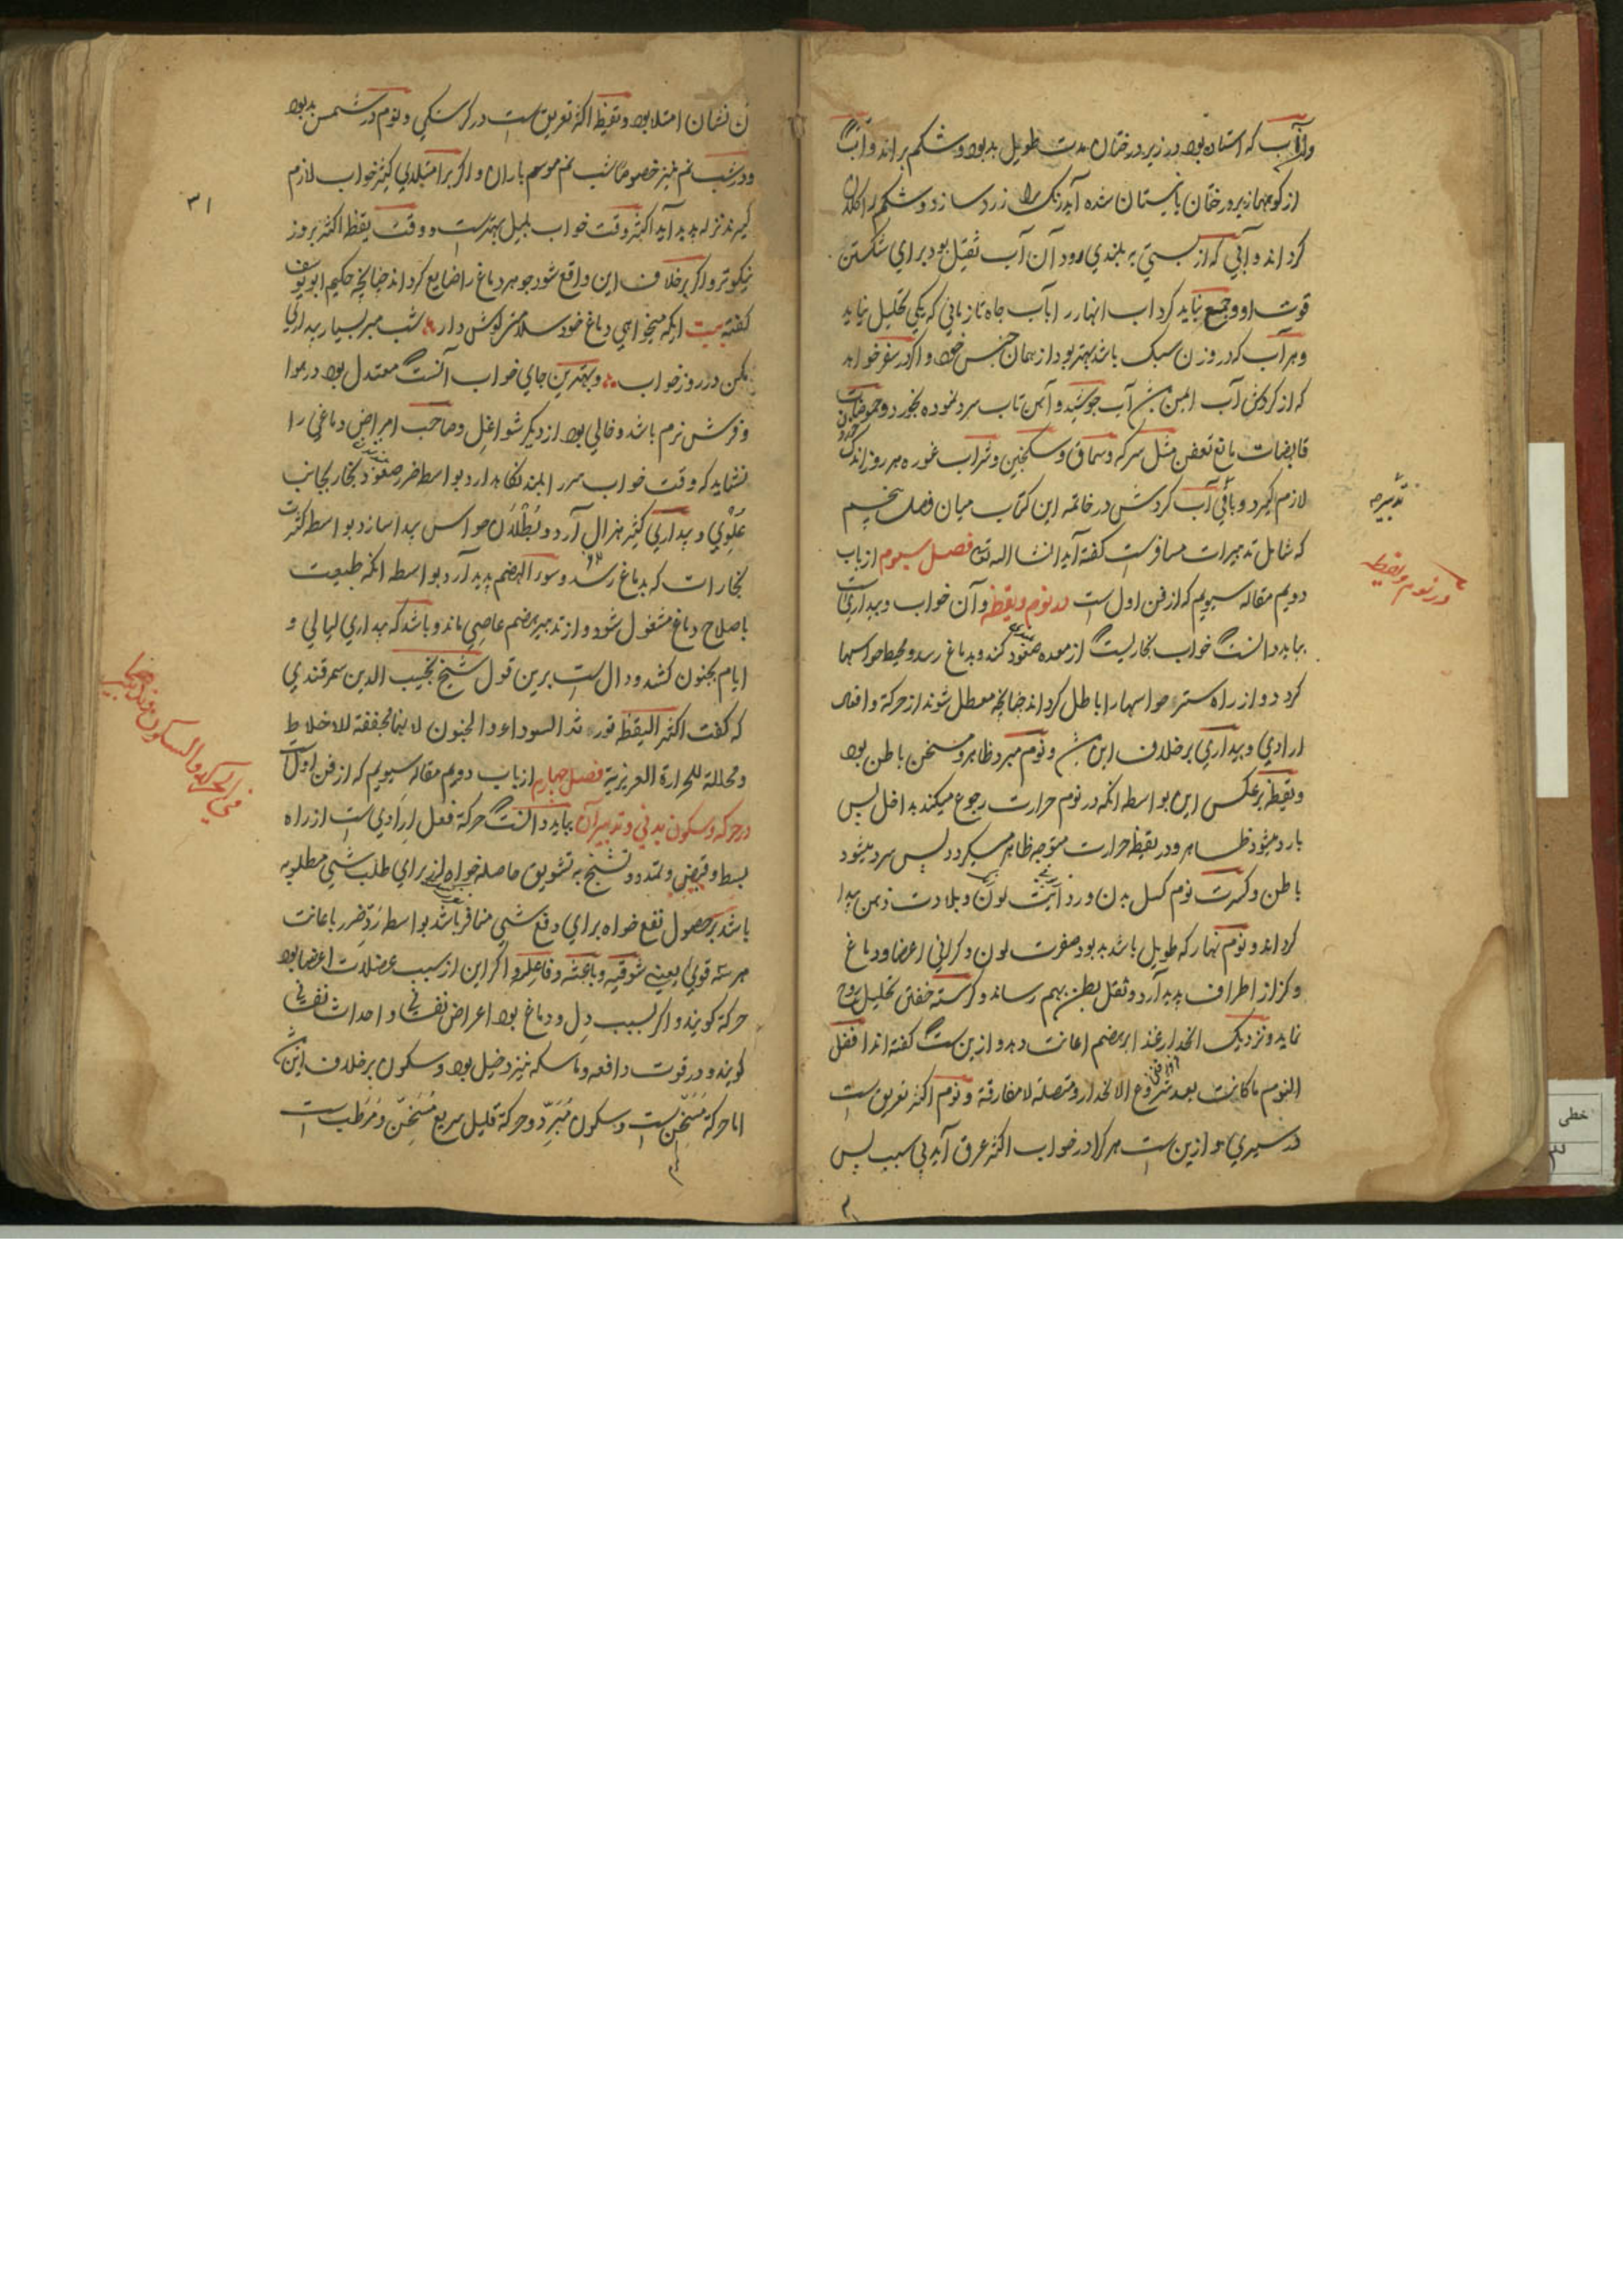 وآب که استاده بود در زیر درختان مدت طویل بد بود و شکم براند و آب
از کوهها زیر درختان نیستان شده آید رنک را زرد سازد و شکم را کلان
کرداند و آبی که از پستی بر بلندی رود آن آب ثقیل بود برای شکستن
قوت او و جمع نباید کرد اب انهار را باب چاه تا زمانی که یکی تحلیل نیابد
و هر آب که در وزن سبک باشد بهتر بود از همان جنس خود و اکر در سفر خواهد
که از کردش آب ایمن آب جوشیده و آهن تاب سرد نموده بخورد و حموضات
قابضات مانع تعفن مثل سرکه و سماق و سکنجبین و شراب غوره هر روز اندک
لازم کیرد و باقی آب کردش در خاتمه این کتاب میان فصل پنجم
که شامل تدبیرات مسافر است کفته آید انشا اله تع فصل سیوم از باب
دویم مقاله سیویم که از فن اول است در نوم و یقظه و آن خواب و بیداری است
بباید دانست خواب بخاریست از معده صعود کند و بدماغ رسد و محیط حواسها
کردد و از راه ستر حواسها را باطل کرداند چنانچه معطل شوند از حرکة و افعال
ارادی و بیداری بر خلاف این و نوم مبرد ظاهر و مسخن باطن بود
و یقظه برعکس این بواسطه انکه در نوم حرارت رجوع میکند بداخل پس
بارد میشود ظاهر و در یقظه حرارت متوجه ظاهر میکردد پس سرد میشود
باطن و کثرت نوم کسل بدن و ردائیت لون و بلادت ذهن پیدا
کرداند و نوم نهار که طویل باشد بد بود صفرت لون و کرانی اعضا و دماغ
و کزاز اطراف پدید آرد و ثقل بطن بهم رساند و کرسنه خفتن تحلیل روح
نماید و نزدیک انحدار غذا بر هضم اعانت دهد و ازین ست کفته اند افضل
النوم ما کانت بعد شروع الانحدار و متصلة لا مفارقة و نوم اکثر تعریق ست
در سیری و ازین ست هر کرا در خواب اکثر عرق آید بی سبب پس
تدبیر
در نوم و یقظه
خطی
۳۱
آن نشان امتلا بود و یقظه اکثر تعریق ست در کرسنکی و نوم در شمس بد بود
و در شب نم نیز خصوصا شب نم موسم باران و اکر بر امتلا کثیر خواب لازم
کیرند نزله پدید آید اکثر وقت خواب بلیل بهترست و وقت یقظه اکثر بروز
نیکوتر و اکر برخلاف این واقع شود جوهر دماغ را ضایع کرداند چنانچه حکیم ابویوسف
کفته بیت ایکه میخواهی دماغ خود سلامتر کوش دار شب مبر بسیار بیداری
مکن در روز خواب و بهترین جای خواب آنست معتدل بود در هوا
و فرش نرم باشد و خالی بود از دیکر شواغل و صاحب امراض دماغی را
نشاید که وقت خواب سر را بلند نکاهدارد بواسطه ضرر صعود بخار بجانب
علوی و بیداری کثیر هزال آرد و بطلان حواس پیدا سازد بواسطه کثرت
بخارات که بدماغ رسد و سوء الهضم پدید آرد بواسطه انکه طبیعت
باصلاح دماغ مشغول شود و از تدبیر هضم عاصی ماند و باشد که بیداری لیالی و
ایام بجنون کشد و دال ست برین قول شیخ نجیب الدین سمرقندی
که کفت اکثر الیقظة تورث السوداء و الجنون لانها مجففة للاخلاط
و محللة للحرارة الغریزیة فصل چهارم از باب دویم مقاله سیویم که از فن اول است
در حرکه و سکون بدنی و تدبیر آن بباید دانست حرکة فعل ارادی ست از راه
بسط و قبض و تمدد و تشنج به تشویق حاصله خواه از برای طلب شی مطلوبه
باشد بر حصول نفع خواه برای دفع شی منافر باشد بواسطه رد ضرر باعانت
هر سه قوی یعنی شوقیه و باعثه و فاعله و اکر این از سبب عضلات اعضا بود
حرکة کویند و اکر بسبب دل و دماغ بود اعراض نفسانی و احداث نفسانی
کویند و در قوت دافعه و ماسکه نیز دخیل بود و سکون برخلاف این
اما حرکة مسخن ست و سکون مبرد و حرکة قلیل سریع مسخن و مرطب ست
فی الحرکة و السکون